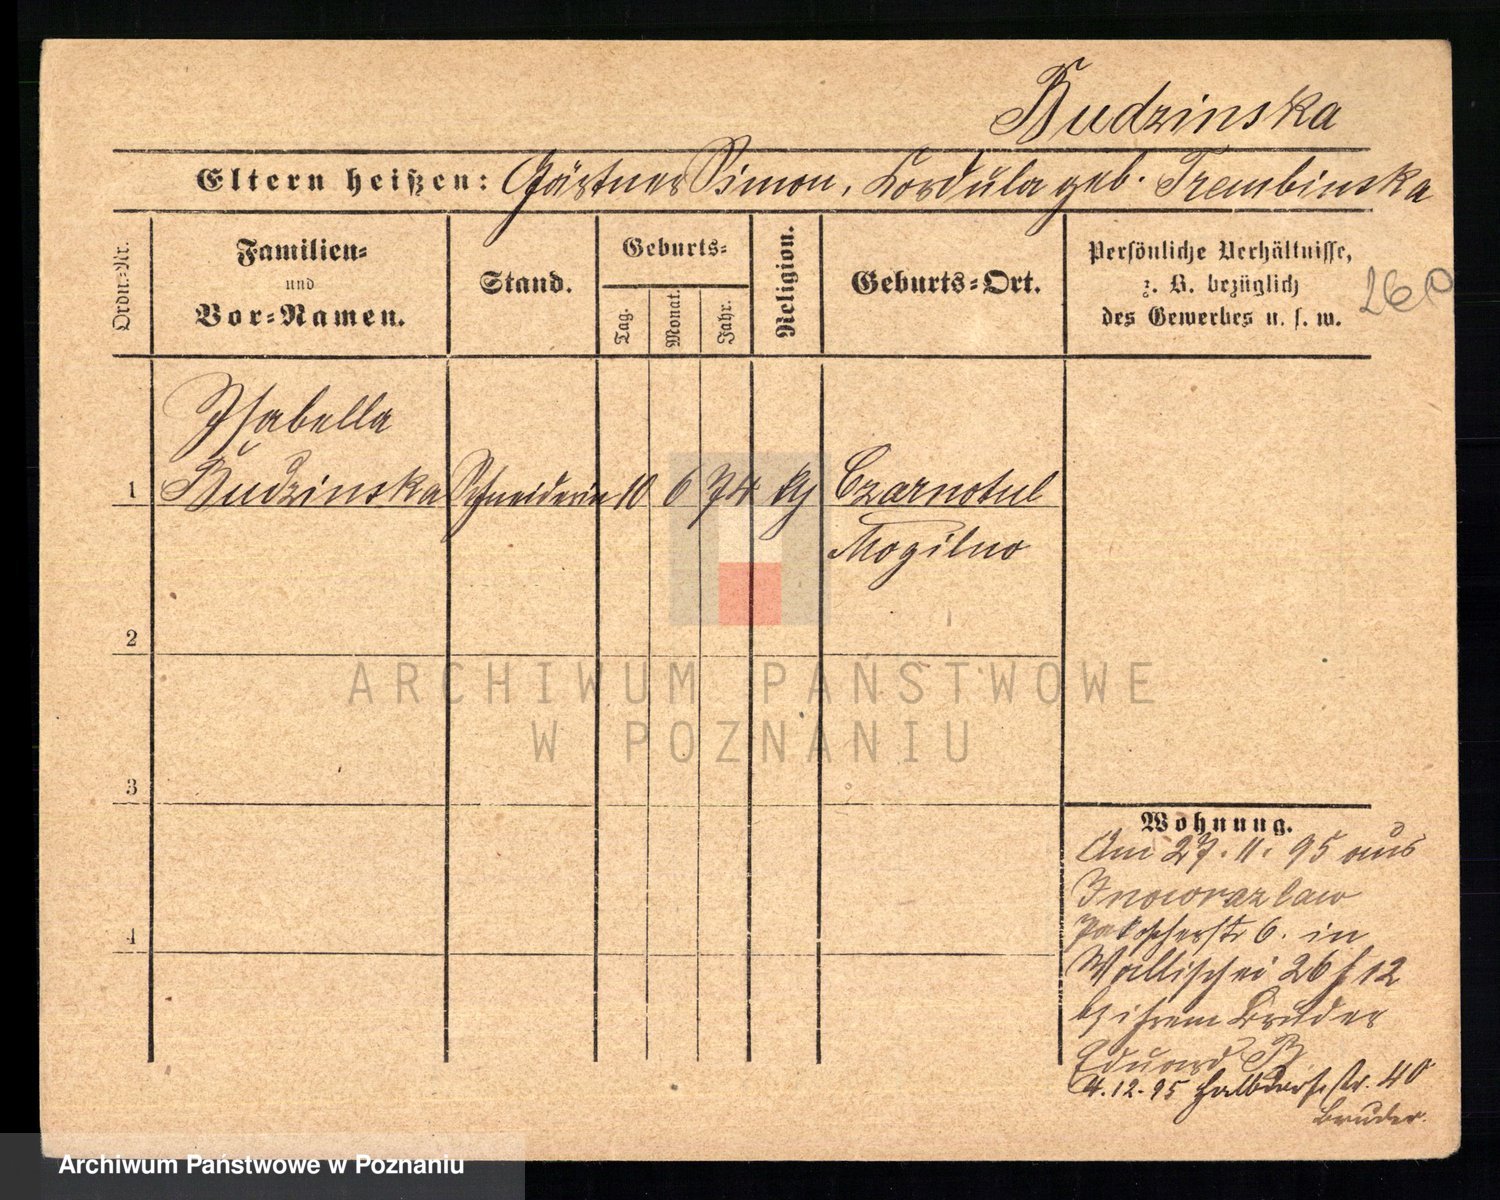 Budzinska
Eltern heißen: Gärtner Simon, Kordula geb. Trembinska
Ordn.-Nr.
Familien-
und
Vor-Namen.
Stand.
Geburts-
Tag.
Monat.
Jahr.
Religion.
Geburts-Ort.
Persönliche Verhältnisse,
z. B. bezüglich
des Gewerbes u. s. w.
260
Isabella
1 Budzinska Schneiderin 10 6 74 kth Czarnotul
Mogilno
2
3
4
Wohnung.
Am 27. 11. 95 aus
Inowrazlaw
6. in
Wallischei 26 12
bei ihrem Bruder
Eduard B
4.12.95 Halbdorfstr. 40
Bruder.
ARCHIWUM PAŃSTWOWE
W POZNANIU
Archiwum Państwowe w Poznaniu